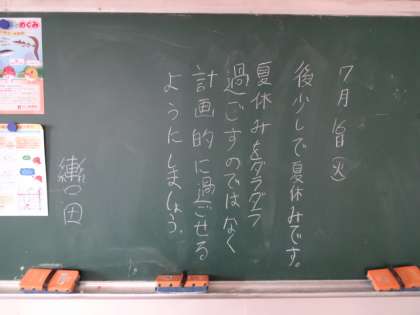 7月16日(火)
後少しで夏休みです。
夏休みをダラダラ
過ごすのではなく
計画的に過ごせる
ようにしましょう。
めぐみ